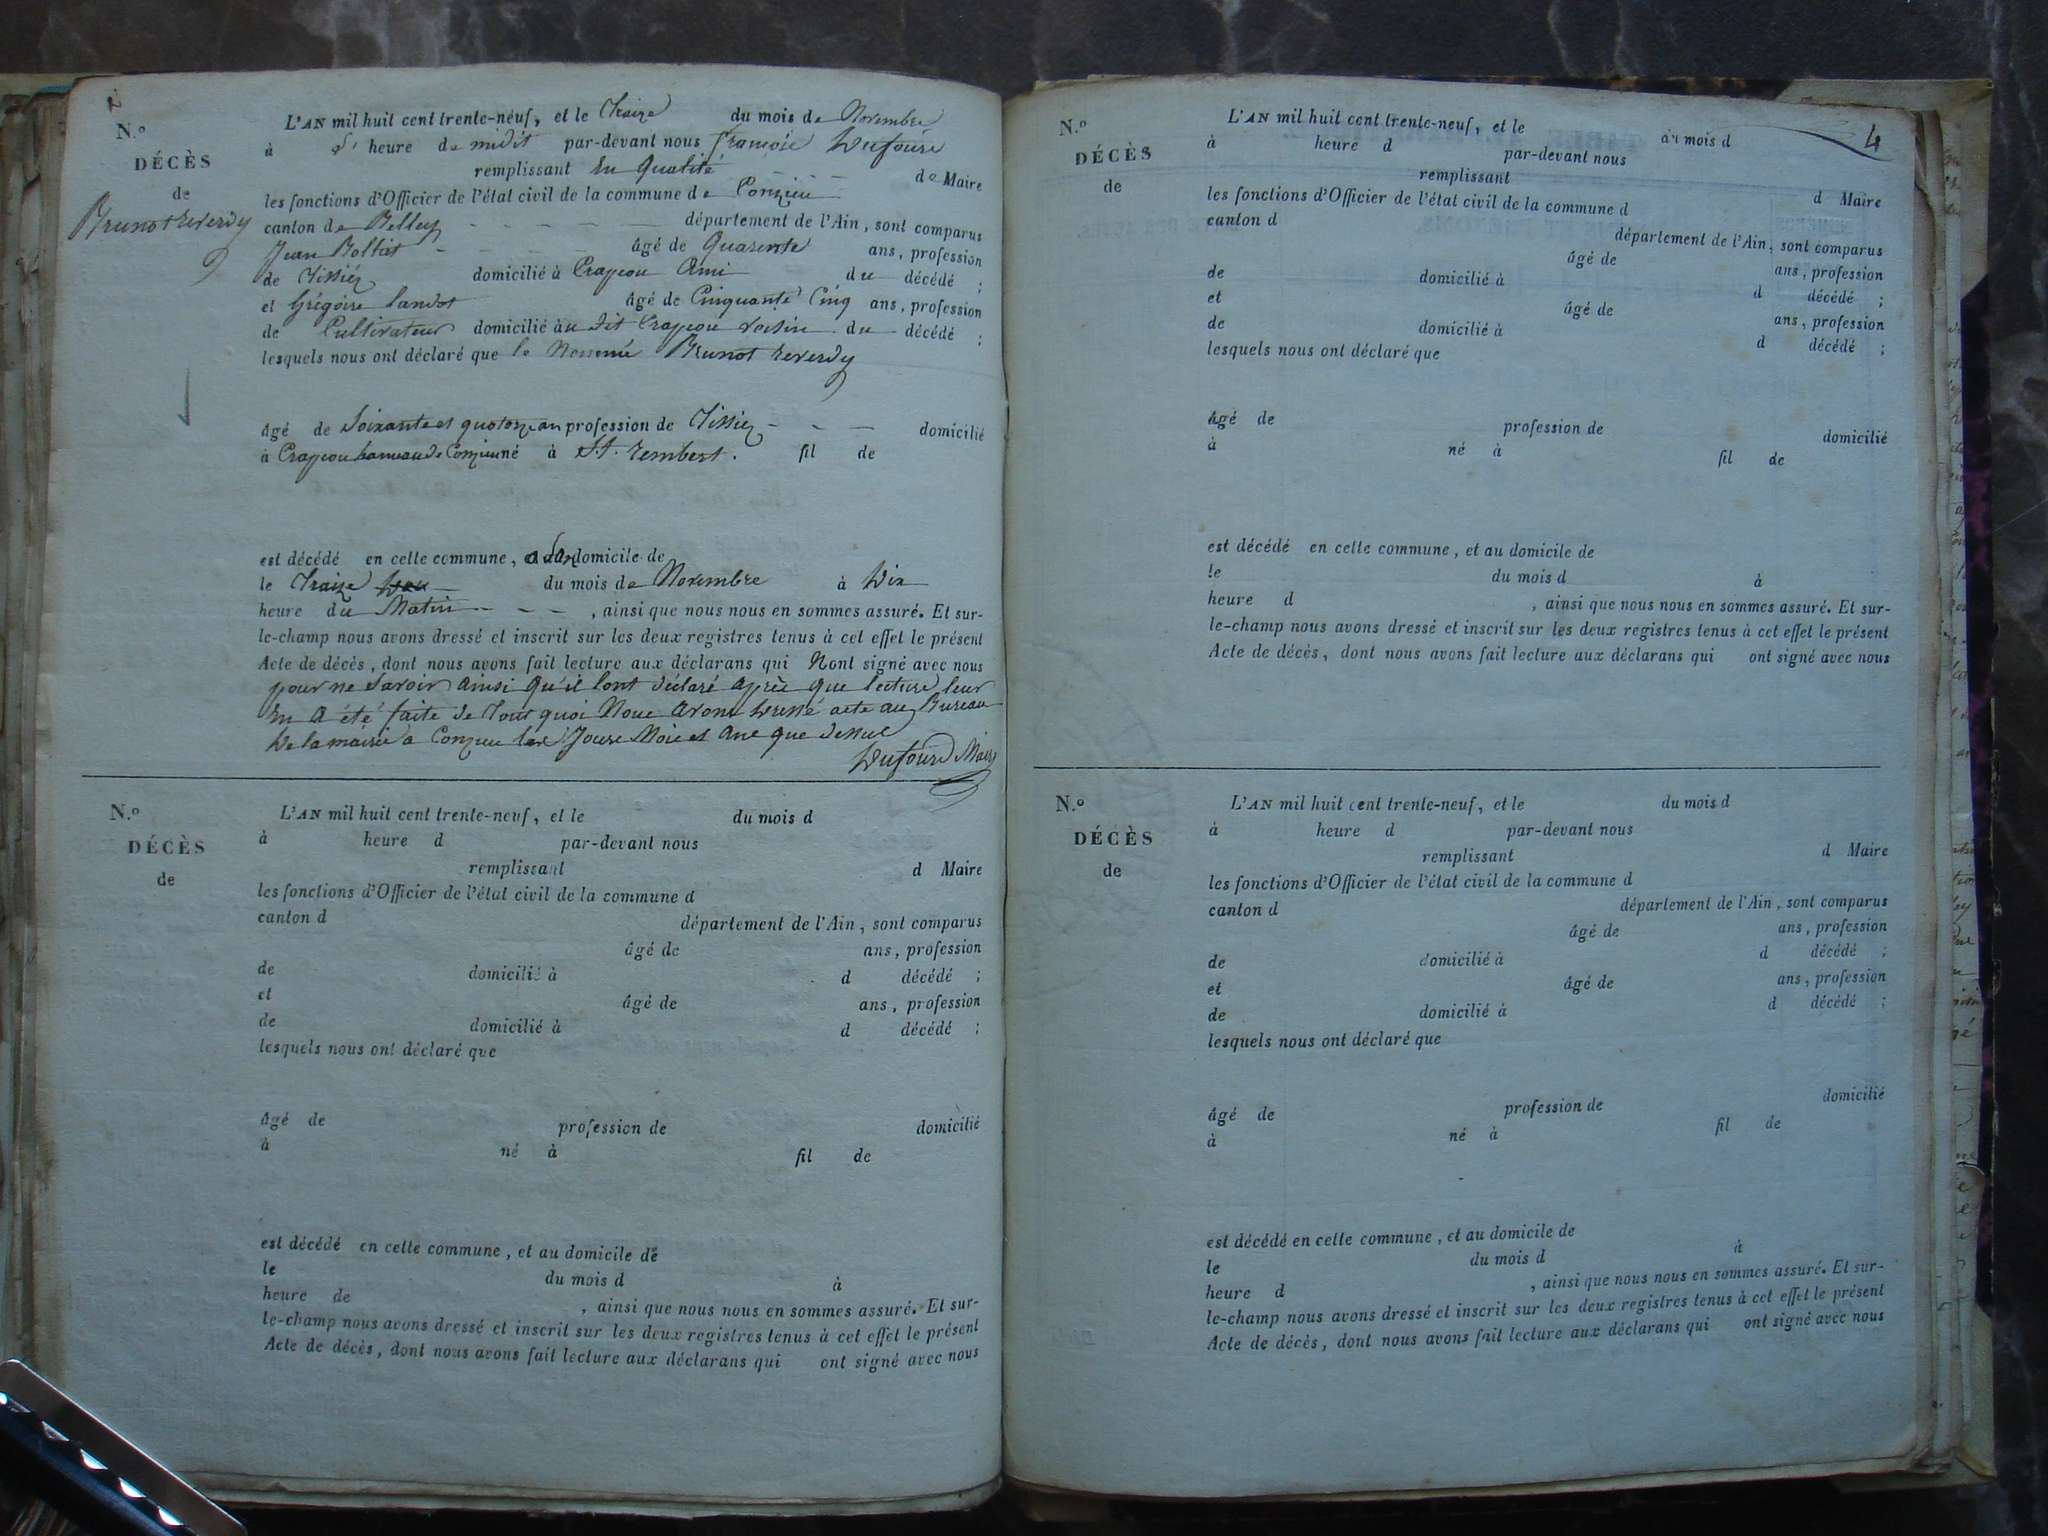 N.º
DÉCÈS
de
Brunot reverdy
L'AN mil huit cent trente-neuf, et le Traize du mois de Novembre
à heure de midit par-devant nous françois Dufour
remplissant En Qualité de Maire
les fonctions d'Officier de l'état civil de la commune de Conzieu
canton de Belley département de l'Ain, sont comparus
Jean âgé de Quarente ans, profession
de Tissiez domicilié à Crapeou Ami du décédé ;
et Grégoire âgé de Cinquante Cinq ans, profession
de Cultivateur domicilié au dit Crapeou voisin du décédé ;
lesquels nous ont déclaré que le Nommé Brunot reverdy
âgé de Soixante et quatorze an profession de Tissiez domicilié
à Crapeou hameau de Conzieu né à St. rembert. fil de
est décédé en cette commune, domicile de
le Traize du mois de Novembre à Dix
heure du Matin , ainsi que nous nous en sommes assuré. Et sur-
le-champ nous avons dressé et inscrit sur les deux registres tenus à cet effet le présent
Acte de décès, dont nous avons fait lecture aux déclarans qui Nont signé avec nous
pour ne Savoir ainsi qu'il lont déclaré après que lecture leur
En a été faite de Tout quoi Nous avons dressé acte au Bureau
De la mairie a Conzieu Les Jours Mois et Ans que dessus
Dufour Maire
N.º
DÉCÈS
de
L'AN mil huit cent trente-neuf, et le du mois d
à heure d par-devant nous
remplissant d Maire
les fonctions d'Officier de l'état civil de la commune d
canton d département de l'Ain, sont comparus
âgé de ans, profession
de domicilié à d décédé ;
et âgé de ans, profession
de domicilié à d décédé ;
lesquels nous ont déclaré que
âgé de profession de domicilié
à né à fil de
est décédé en cette commune, et au domicile de
le du mois d à
heure de , ainsi que nous nous en sommes assuré. Et sur-
le-champ nous avons dressé et inscrit sur les deux registres tenus à cet effet le présent
Acte de décès, dont nous avons fait lecture aux déclarans qui ont signé avec nous
4
N.º
DÉCÈS
de
L'AN mil huit cent trente-neuf, et le du mois d
à heure d par-devant nous
remplissant d Maire
les fonctions d'Officier de l'état civil de la commune d
canton d département de l'Ain, sont comparus
âgé de ans, profession
de domicilié à d décédé ;
et âgé de ans, profession
de domicilié à d décédé ;
lesquels nous ont déclaré que
âgé de profession de domicilié
à né à fil de
est décédé en cette commune, et au domicile de
le du mois d à
heure d , ainsi que nous nous en sommes assuré. Et sur-
le-champ nous avons dressé et inscrit sur les deux registres tenus à cet effet le présent
Acte de décès, dont nous avons fait lecture aux déclarans qui ont signé avec nous
N.º
DÉCÈS
de
L'AN mil huit cent trente-neuf, et le du mois d
à heure d par-devant nous
remplissant d Maire
les fonctions d'Officier de l'état civil de la commune d
canton d département de l'Ain, sont comparus
âgé de ans, profession
de domicilié à d décédé ;
et âgé de ans, profession
de domicilié à d décédé ;
lesquels nous ont déclaré que
âgé de profession de domicilié
à né à fil de
est décédé en cette commune, et au domicile de
le du mois d à
heure d , ainsi que nous nous en sommes assuré. Et sur-
le-champ nous avons dressé et inscrit sur les deux registres tenus à cet effet le présent
Acte de décès, dont nous avons fait lecture aux déclarans qui ont signé avec nous